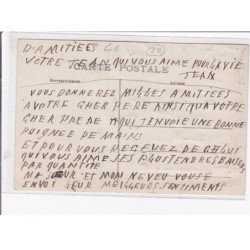 D'AMITIÉES
VOTRE JEAN QUI VOUS AIME POUR LA VIE
CARTE POSTALE
JEAN
VOUS DONNEREZ MILLES AMITIEES
A VOTRE CHER PERE AINSI QUA VOTRE
CHER A QUI J'ENVOIE UNE BONNE
POIGNEE DE MAINS
ET POUR VOUS RECEVEZ DE CELUI
QUI VOUS AIME SES PLUS TENDRES BAISERS
PAR QUANTITE
MA SŒUR ET MON NEVEU VOUS
ENVOI LEUR MEILLEURS SENTIMENTS